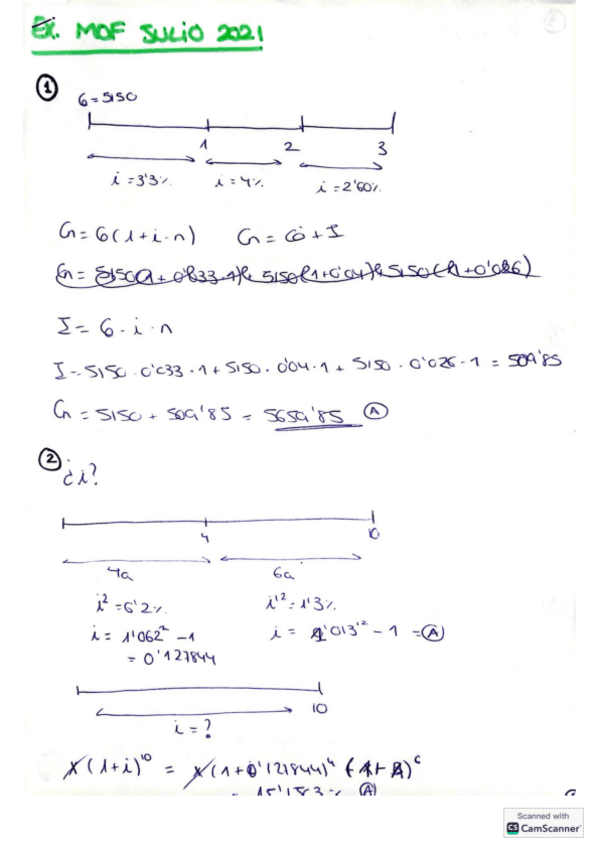 EX. MOF JULIO 2021
①
C₀=5150
1 2 3
i=3'3% i=4% i=2'60%
Cn=C₀(1+i·n) Cn=C₀+I
Cn=5150(1+0'033·1)+5150(1+0'04)+5150(1+0'026)
I=C₀·i·n
I=5150·0'033·1+5150·0'04·1+5150·0'026·1=509'85
Cn=5150+509'85=5659'85 Ⓐ
②
¿i?
4 10
4a 6a
i²=6'2% i¹²=1'3%
i=1'062²-1 i=1'013¹²-1=Ⓐ
=0'127844
10
i=?
x(1+i)¹⁰=x(1+0'127844)⁴(1+A)⁶
=15'153% Ⓐ
Scanned with
CS CamScanner